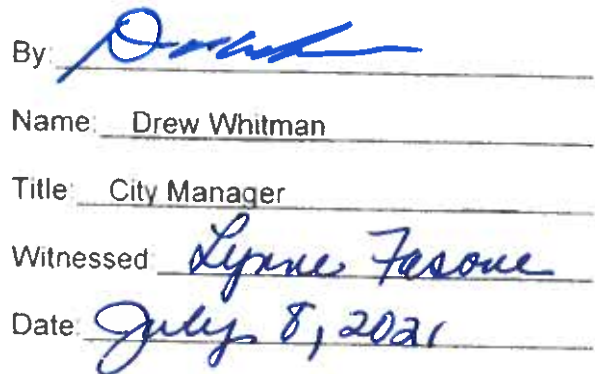 By:
Name: Drew Whitman
Title: City Manager
Witnessed Lynne Fasone
Date: July 8, 2021